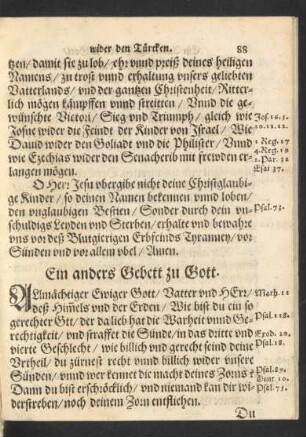 wider den Türcken. 88
tzen/ damit sie zu lob/ ehr vnnd preiß deines heiligen
Namens/ zu trost vnnd erhaltung vnsers geliebten
Vatterlands/ vnd der gantzen Christenheit/ Ritter-
lich mögen kämpffen vnnd streitten/ Vnnd die ge-
wünschte Victori/ Sieg vnd Triumph/ gleich wie Jos.
Josue wider die Feinde der Kinder von Israel/ Wie 10.11.12.
Dauid wider den Goliath vnd die Philister/ Vnnd 1.Reg.17
wie Ezechias wider den Senacherib mit frewden er- 4.Reg.19
langen mögen. 2.Par.32
Esai 37.
O Herr Jesu vbergibe nicht deine Christglaubi-
ge Kinder/ so deinen Namen bekennen vnnd loben/
den vnglaubigen Bestien/ Sonder durch dein vn- Psal.73.
schuldigs Leyden vnd Sterben/ erhalt vnd bewahre
vns vor deß Blutgierigen Erbfeinds Tyranney/ vor
Sünden vnd vor allem vbel/ Amen.
Ein anders Gebett zu Gott.
ALlmächtiger Ewiger Gott/ Vatter vnd HErr/ Math.11
deß Him̃els vnd der Erden/ Wie bist du ein so
gerechter Gott/ der da lieb hat die Warheit vnnd Ge- Psal.118.
rechtigkeit/ vnd straffet die Sünde/ in das dritte vnd Exod.20.
vierte Geschlecht/ wie billich vnd gerecht seind deine Psal.18.
Vrtheil/ du zürnest recht vnnd billich wider vnsere
Sünden/ vnnd wer kennet die macht deines Zorns? Psal.89.
Dann du bist erschröcklich/ vnd niemand kan dir wi-
derstreben/ noch deinem Zorn entfliehen. Psal.75.
Du